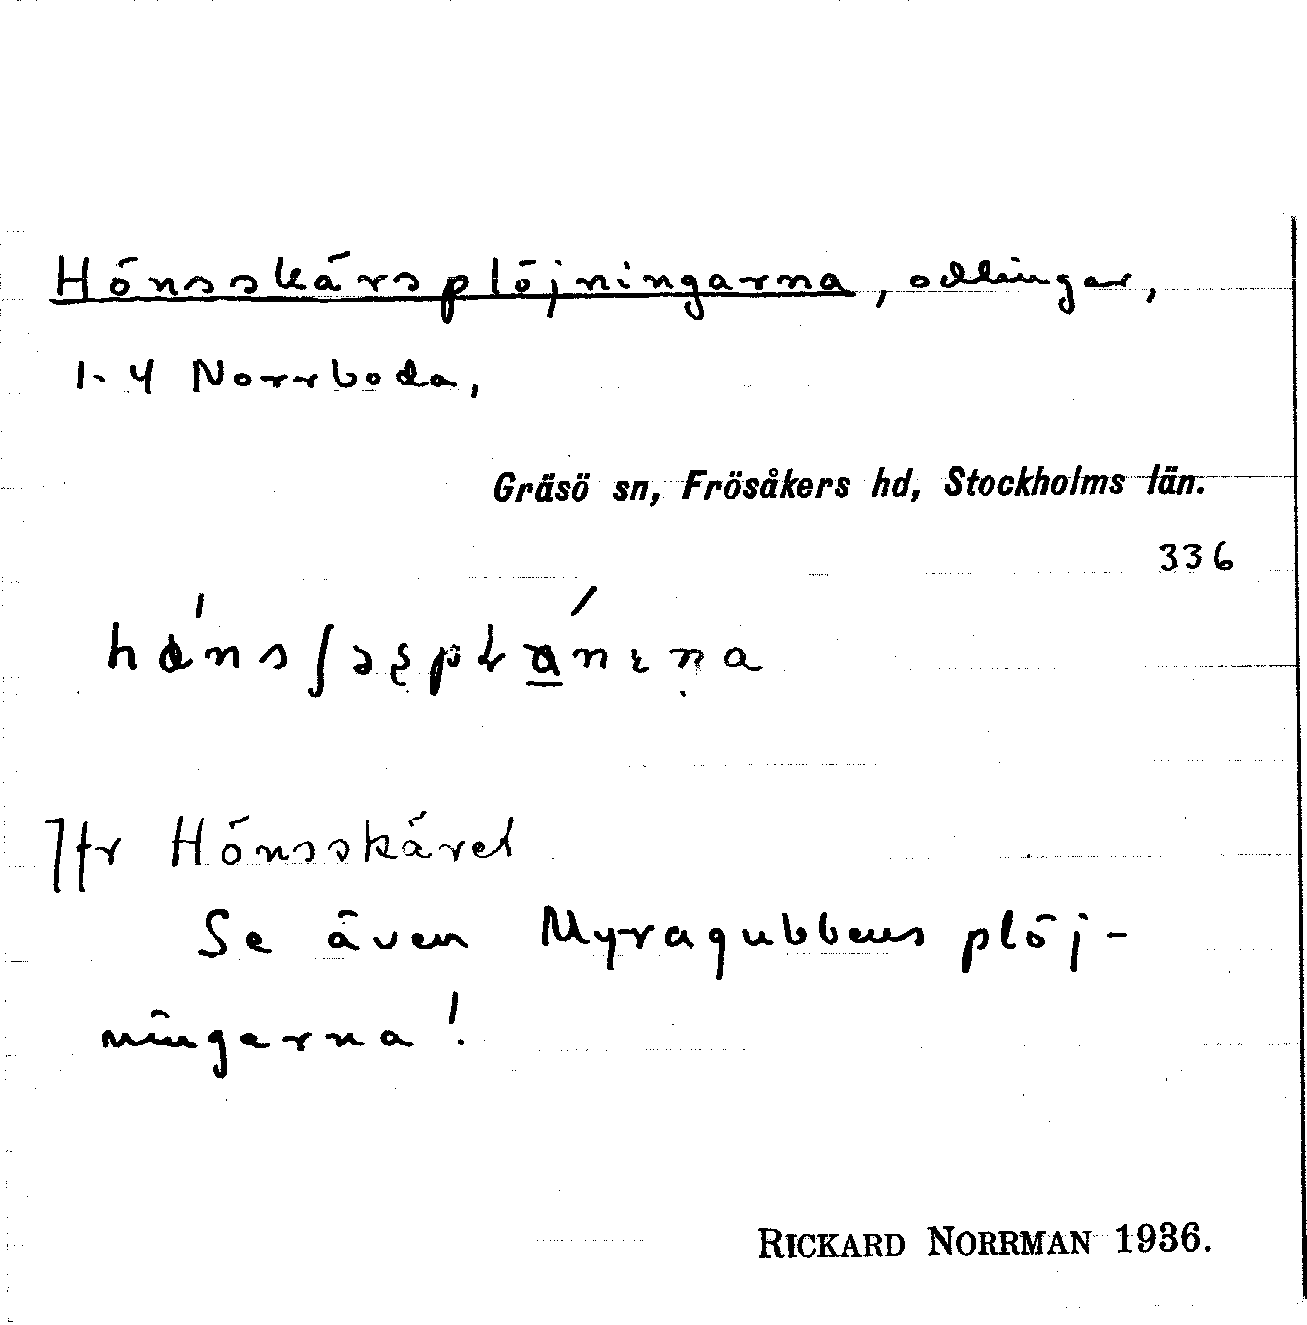 Hönsskärsplöjningarna, odlingar,
1-4 Norrboda,
Gräsö sn, Frösåkers hd, Stockholms län.
336
Jfr Hönsskäret
Se även Myragubbens plöj-
ningarna!
RICKARD NORRMAN 1936.